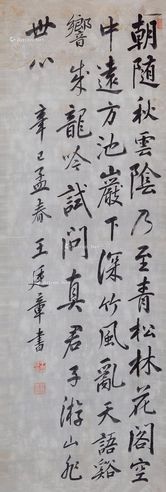 朝隨秋雲陰乃至青松林花閣空
中遠方池巖下深竹風亂天語谿
響成龍吟試問真君子游山非
世心
辛巳孟春王廷章書